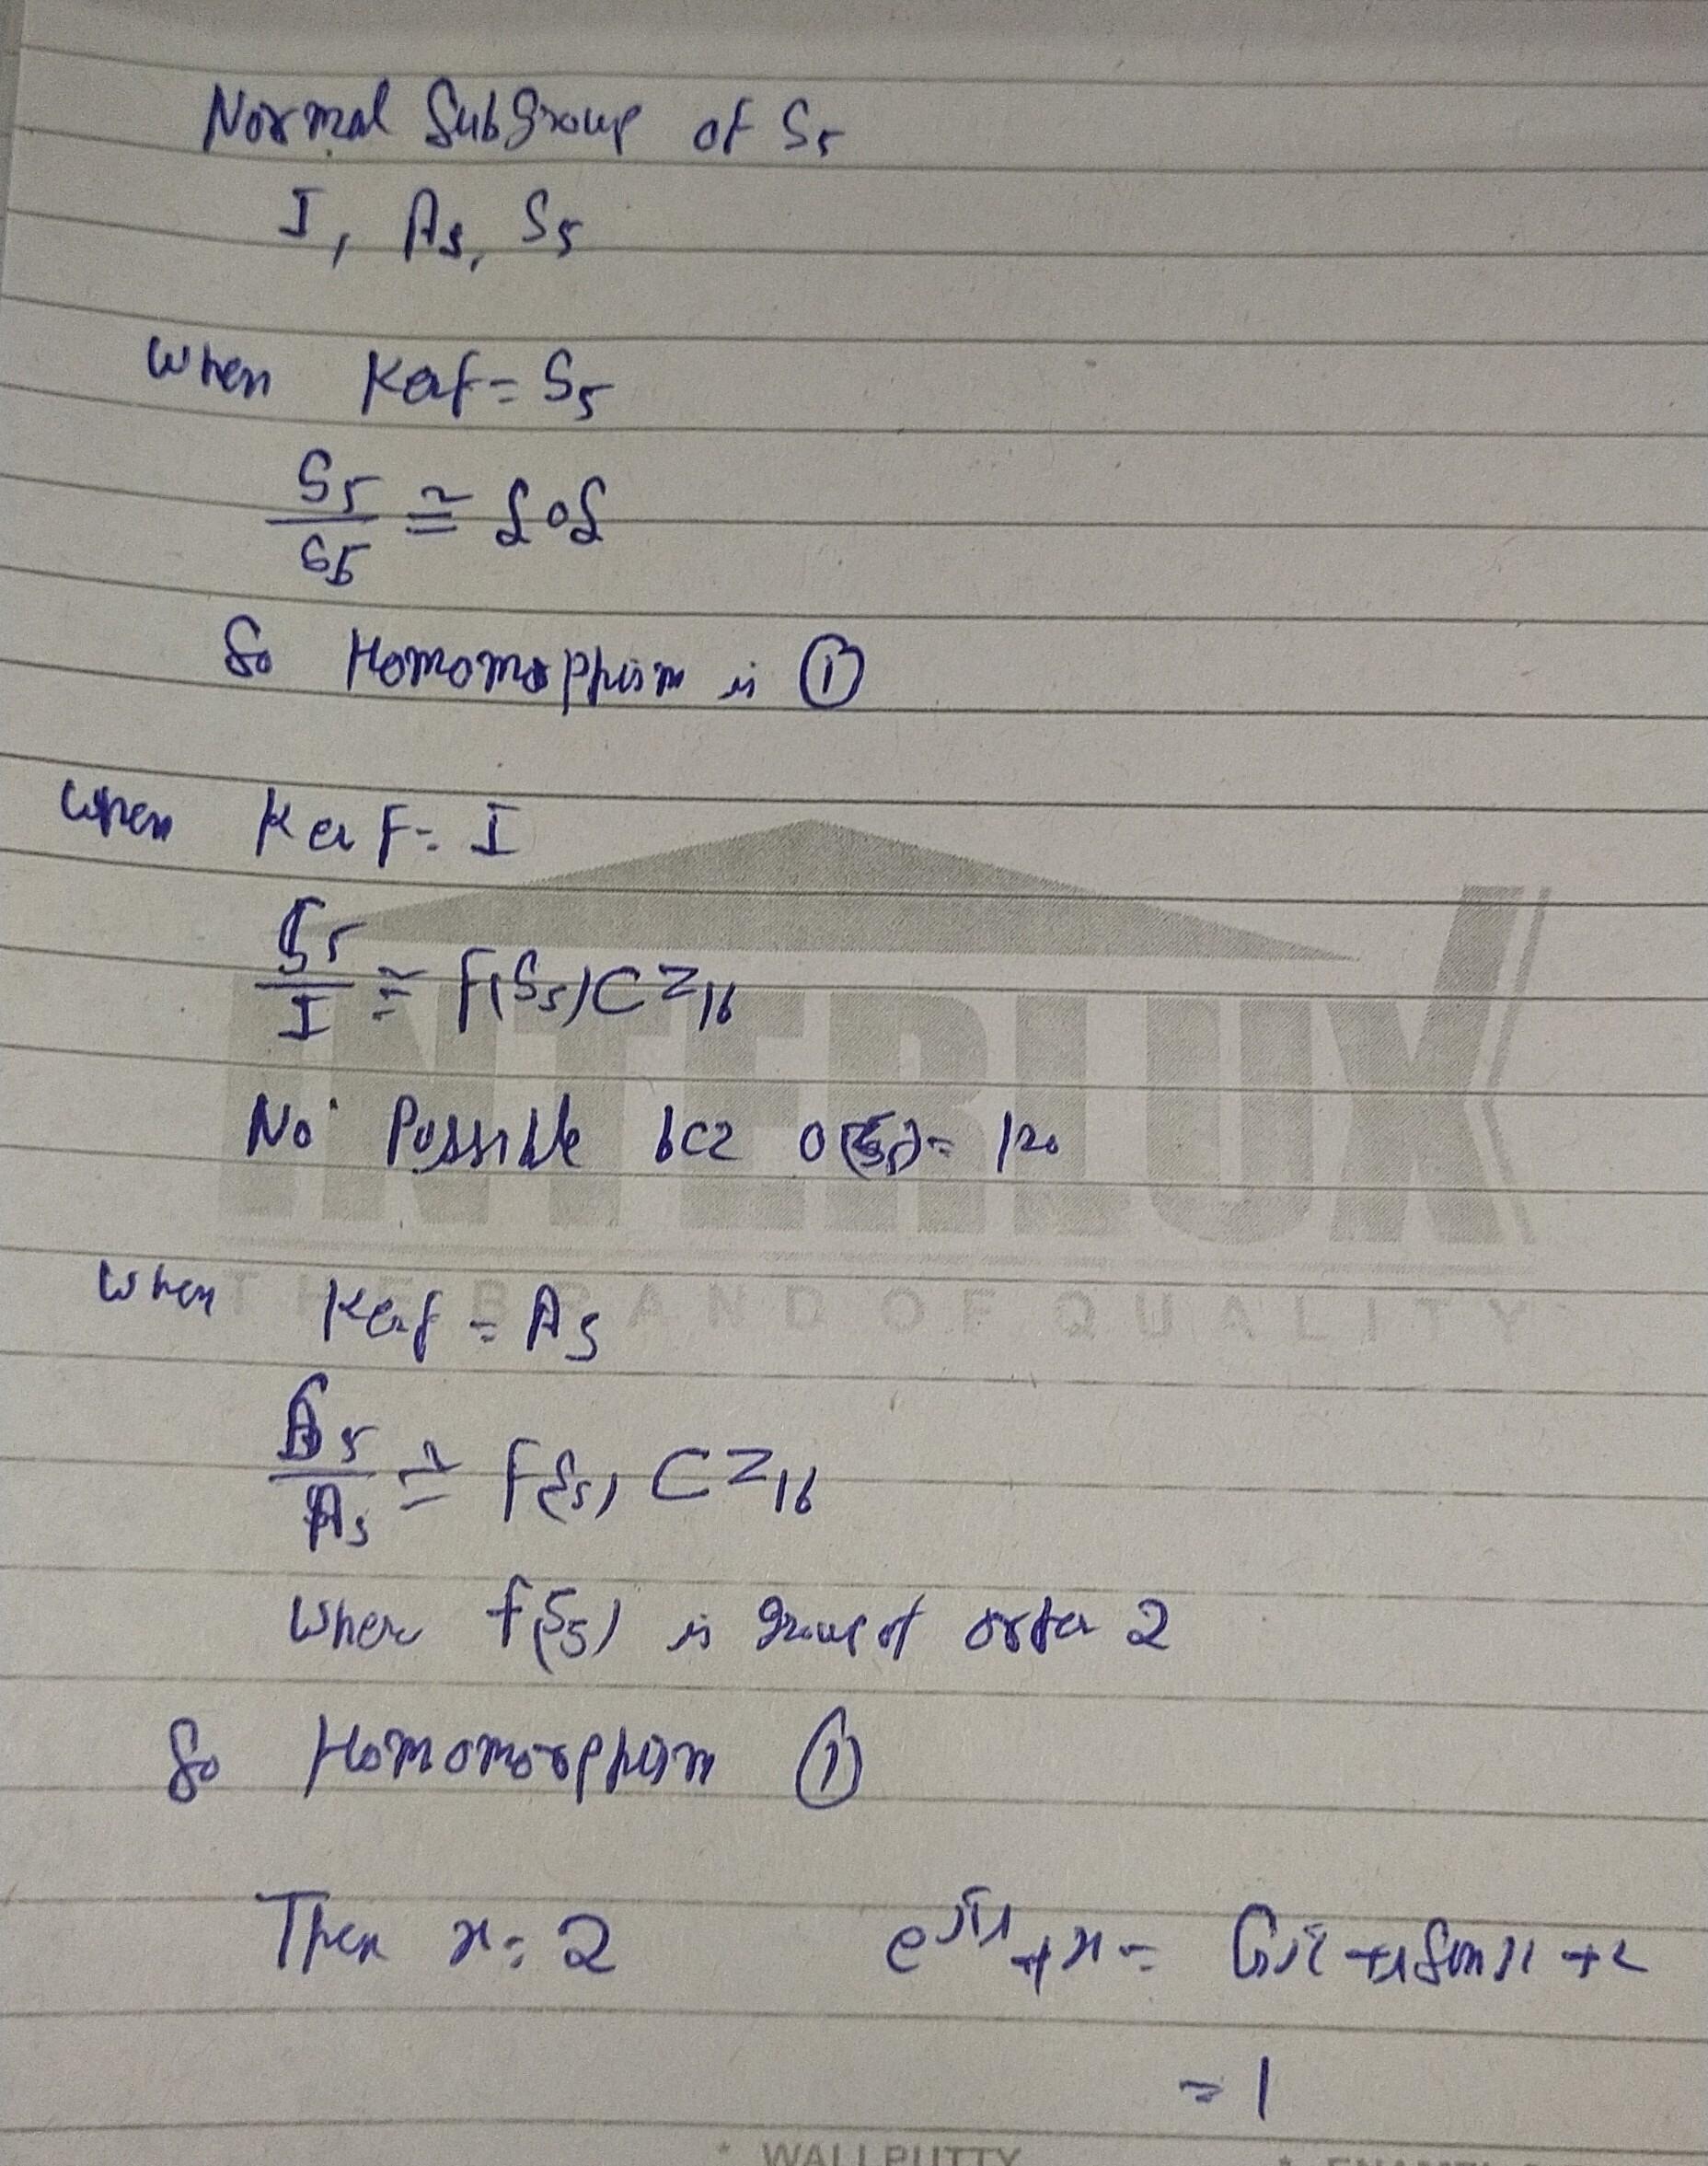 Normal SubGroup of S5
I, A5, S5
When Kerf = S5
S5
S5 ≅ {0}
So Homomorphism is ①
When Ker F = I
S5
I ≅ F(S5) ⊂ Z16
No Possible bcz O(S5) = 120
When Kerf = A5
S5
A5 ≅ F(S5) ⊂ Z16
Where f(S5) is group of order 2
So Homomorphism ①
Then x = 2 e^πi + x = Cosπ + i Sinπ + 2
= 1
INTERLUX
THE BRAND OF QUALITY
* WALL PUTTY